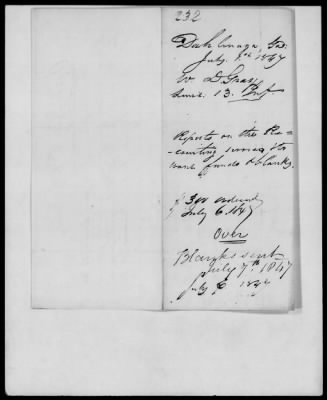 232
Dahlonega, Ga.
July 1st 1847
W D Gray
Lieut. 13. Inf.
Reports on the Re-
-cruiting service its
want funds & blanks
$ 300 ordered
July 6. 1847
Over
Blanks sent
July 7th 1847
July 6 1847